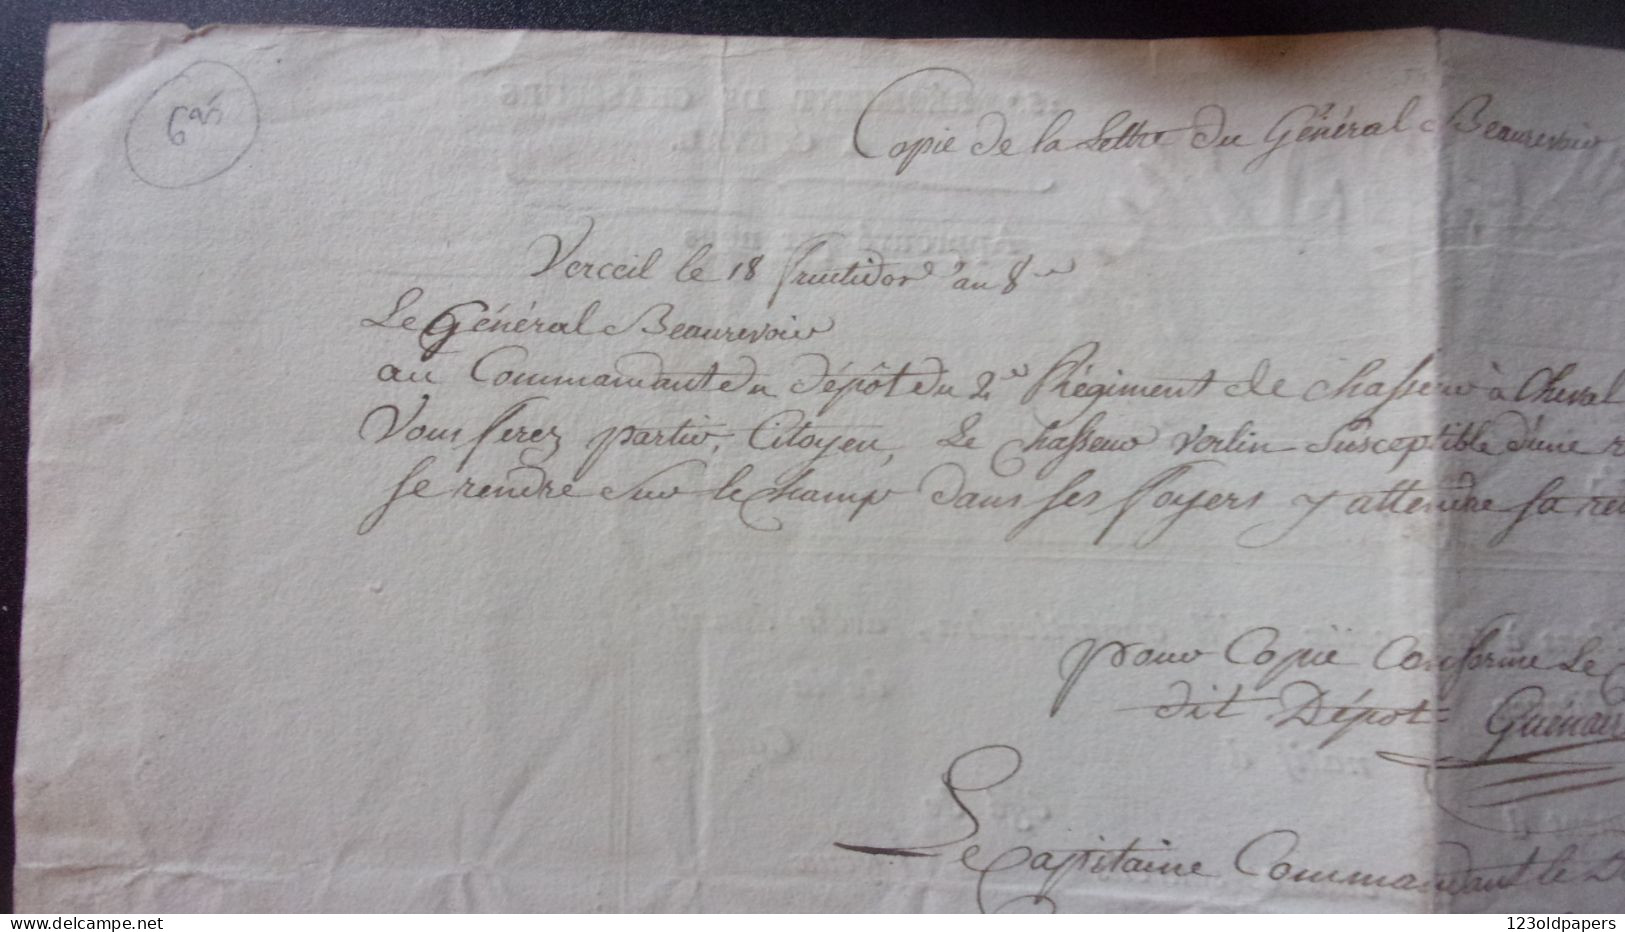 Copie de la Lettre du Général Beaurevoir
Verceil le 18 fructidor an 8
Le Général Beaurevoir
au Commandant du dépôt du 2e Régiment de chasseur à Cheval
Vous ferez partir, Citoyen, Le Chasseur Susceptible d'une
se rendre sur le champ dans ses foyers y attendre sa
pour Copie Conforme Le
dit Dépot
Le Capitaine Commandant le
123oldpapers